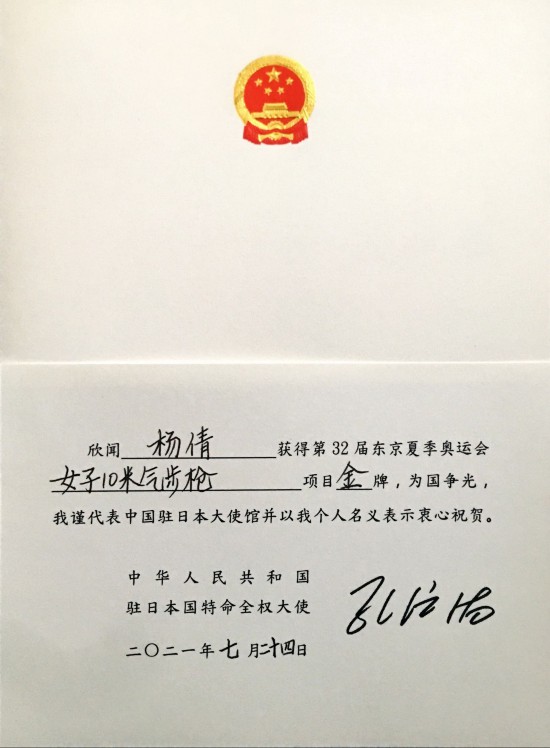 欣闻 杨倩 获得第32届东京夏季奥运会
女子10米气步枪 项目 金 牌，为国争光，
我谨代表中国驻日本大使馆并以我个人名义表示衷心祝贺。
中华人民共和国
驻日本国特命全权大使
孔铉佑
二〇二一年七月二十四日